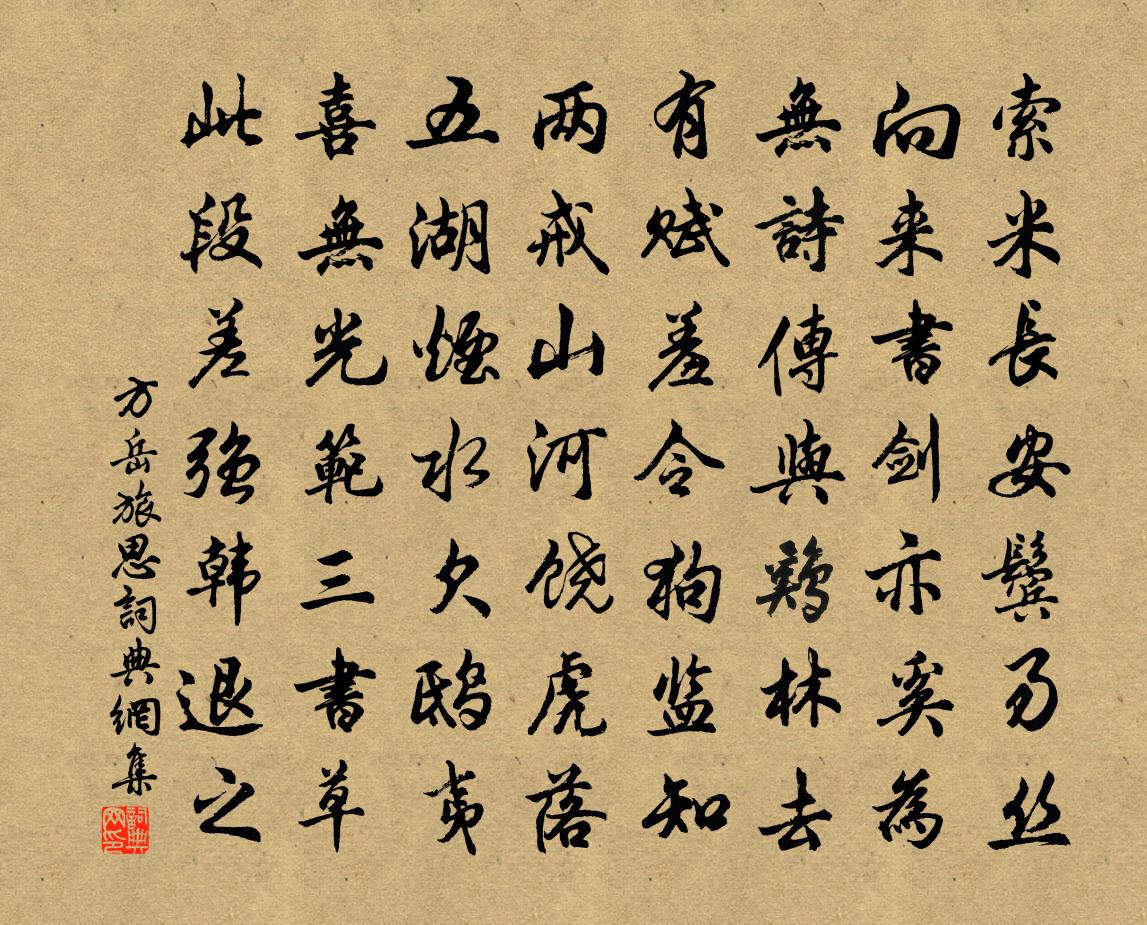 索米長安鬓易丝
向来書剑亦奚為
無詩傳與鷄林去
有赋羞令狗监知
两戒山河饶虎落
五湖煙水欠鸱夷
喜無光範三書草
此段差强韩退之
方岳旅思詞典網集
詞典网印